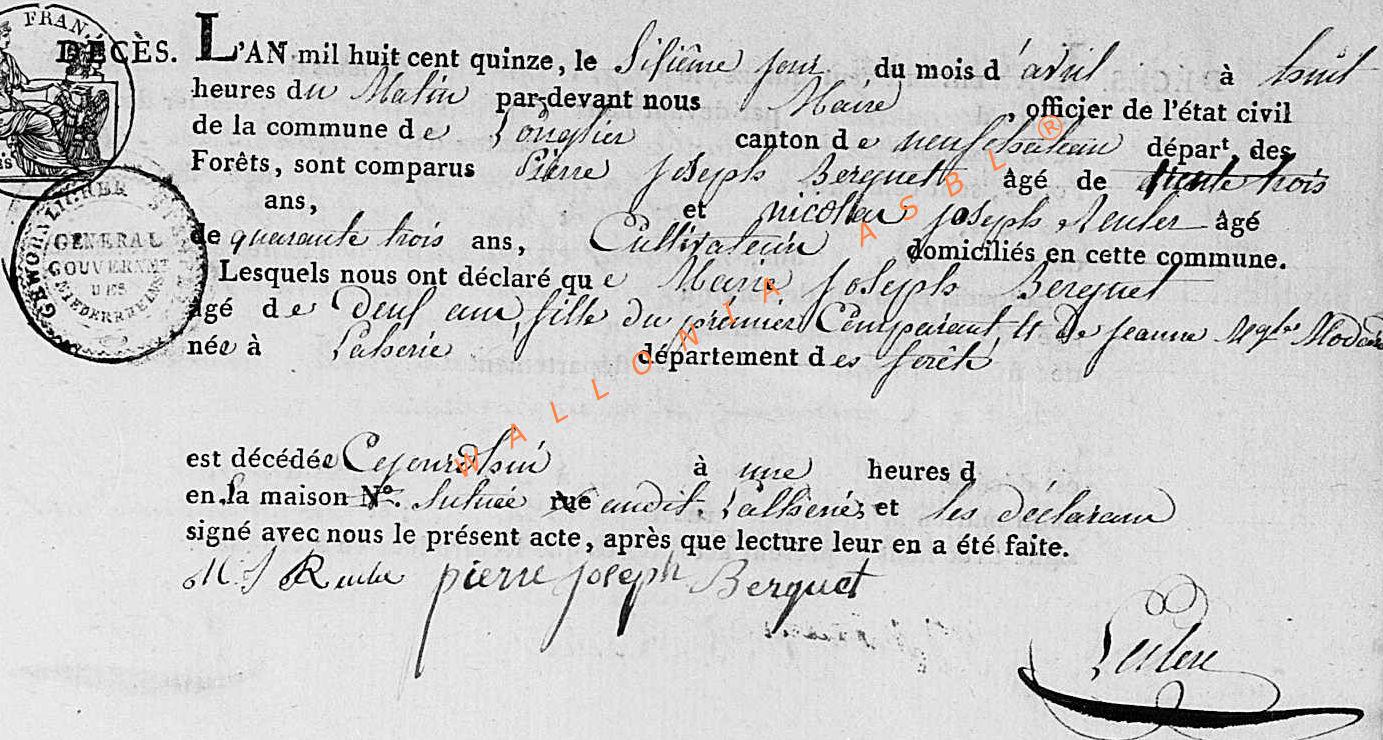 FRAN
DÉCÈS. L'AN mil huit cent quinze, le Sisiême jour du mois d'avril à huit
heures du Matin par-devant nous Maire, officier de l'état civil
de la commune de Longlier canton de neufchateau départ. des
Forêts, sont comparus Pierre Joseph Berguet âgé de trente trois
ans, et nicolas joseph Reuler âgé
de quarante trois ans, Cultivateur domiciliés en cette commune.
Lesquels nous ont déclaré que Marie Joseph Berguet
agé de deux ans, fille du premier Comparant et de jeanne
née à Laherie département des forêts
est décédée Cejourdhui à une heures d
en la maison N.º situeé rue audit Laherie, et les déclarans
signé avec nous le présent acte, après que lecture leur en a été faite.
pierre joseph Berguet
GENERAL
GOUVERNEMT
DES
NIEDERRHEINS
WALLONIA ASBL ®